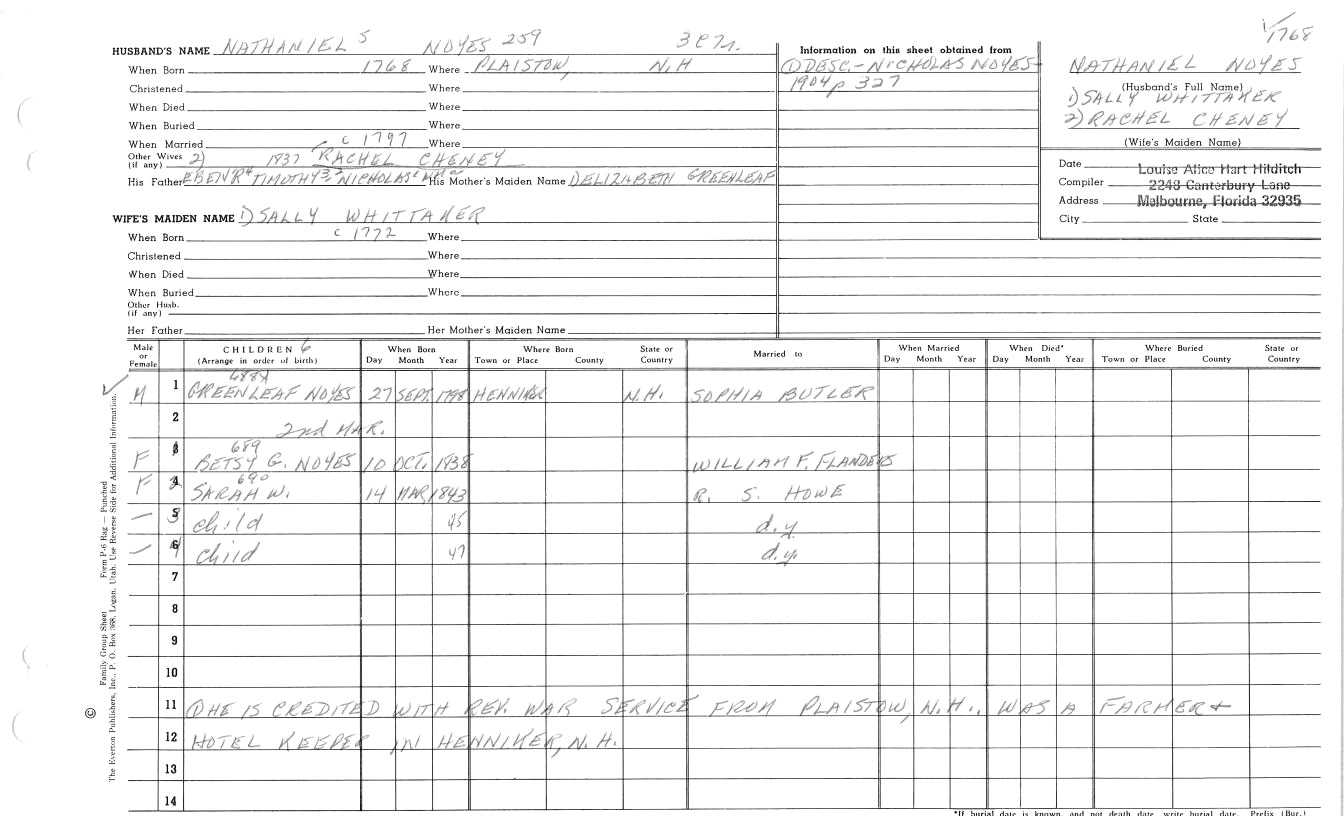 1768
HUSBAND'S NAME NATHANIEL 5 NOYES 259
When Born 1768 Where PLAISTOW, N.H
Christened Where
When Died Where
When Buried Where
When Married c 1797 Where
Other Wives (if any) 2) 1837 RACHEL CHENEY
His Father EBENR4 TIMOTHY3, 2 NICHOLAS His Mother's Maiden Name ELIZABETH GREENLEAF
Information on this sheet obtained from
① DESC.-NICHOLAS NOYES-
1904 p 327
NATHANIEL NOYES
(Husband's Full Name)
1) SALLY WHITTAKER
2) RACHEL CHENEY
(Wife's Maiden Name)
Date
Compiler
Address
City State
Louise Alice Hart Hilditch
2248 Canterbury Lane
Melbourne, Florida 32935
WIFE'S MAIDEN NAME 1) SALLY WHITTAKER
When Born c 1772 Where
Christened Where
When Died Where
When Buried Where
Other Husb. (if any)
Her Father Her Mother's Maiden Name
Male or Female
CHILDREN 6
(Arrange in order of birth)
When Born
Day Month Year
Where Born
Town or Place County
State or Country
Married to
When Married
Day Month Year
When Died*
Day Month Year
Where Buried
Town or Place County
State or Country
688
M 1 GREENLEAF NOYES 27 SEPT. 1798 HENNIKER N.H. SOPHIA BUTLER
2 2nd MAR.
689
F BETSY G. NOYES 10 OCT. 1938 WILLIAM F. FLANDERS
690
F 4 SARAH W. 14 MAR, 1843 R. S. HOWE
— 5 child 45 d.y.
— 6 child 47 d.y.
7
8
9
10
11 ① HE IS CREDITED WITH REV. WAR SERVICE FROM PLAISTOW, N.H., WAS A FARMER +
12 HOTEL KEEPER IN HENNIKER, N.H.
13
14
*If burial date is known, and not death date, write burial date. Prefix (Bur.)
© The Everton Publishers, Inc., P. O. Box 368, Logan, Utah. Use Reverse Side for Additional Information.
Family Group Sheet Form P-6 Rag — Punched